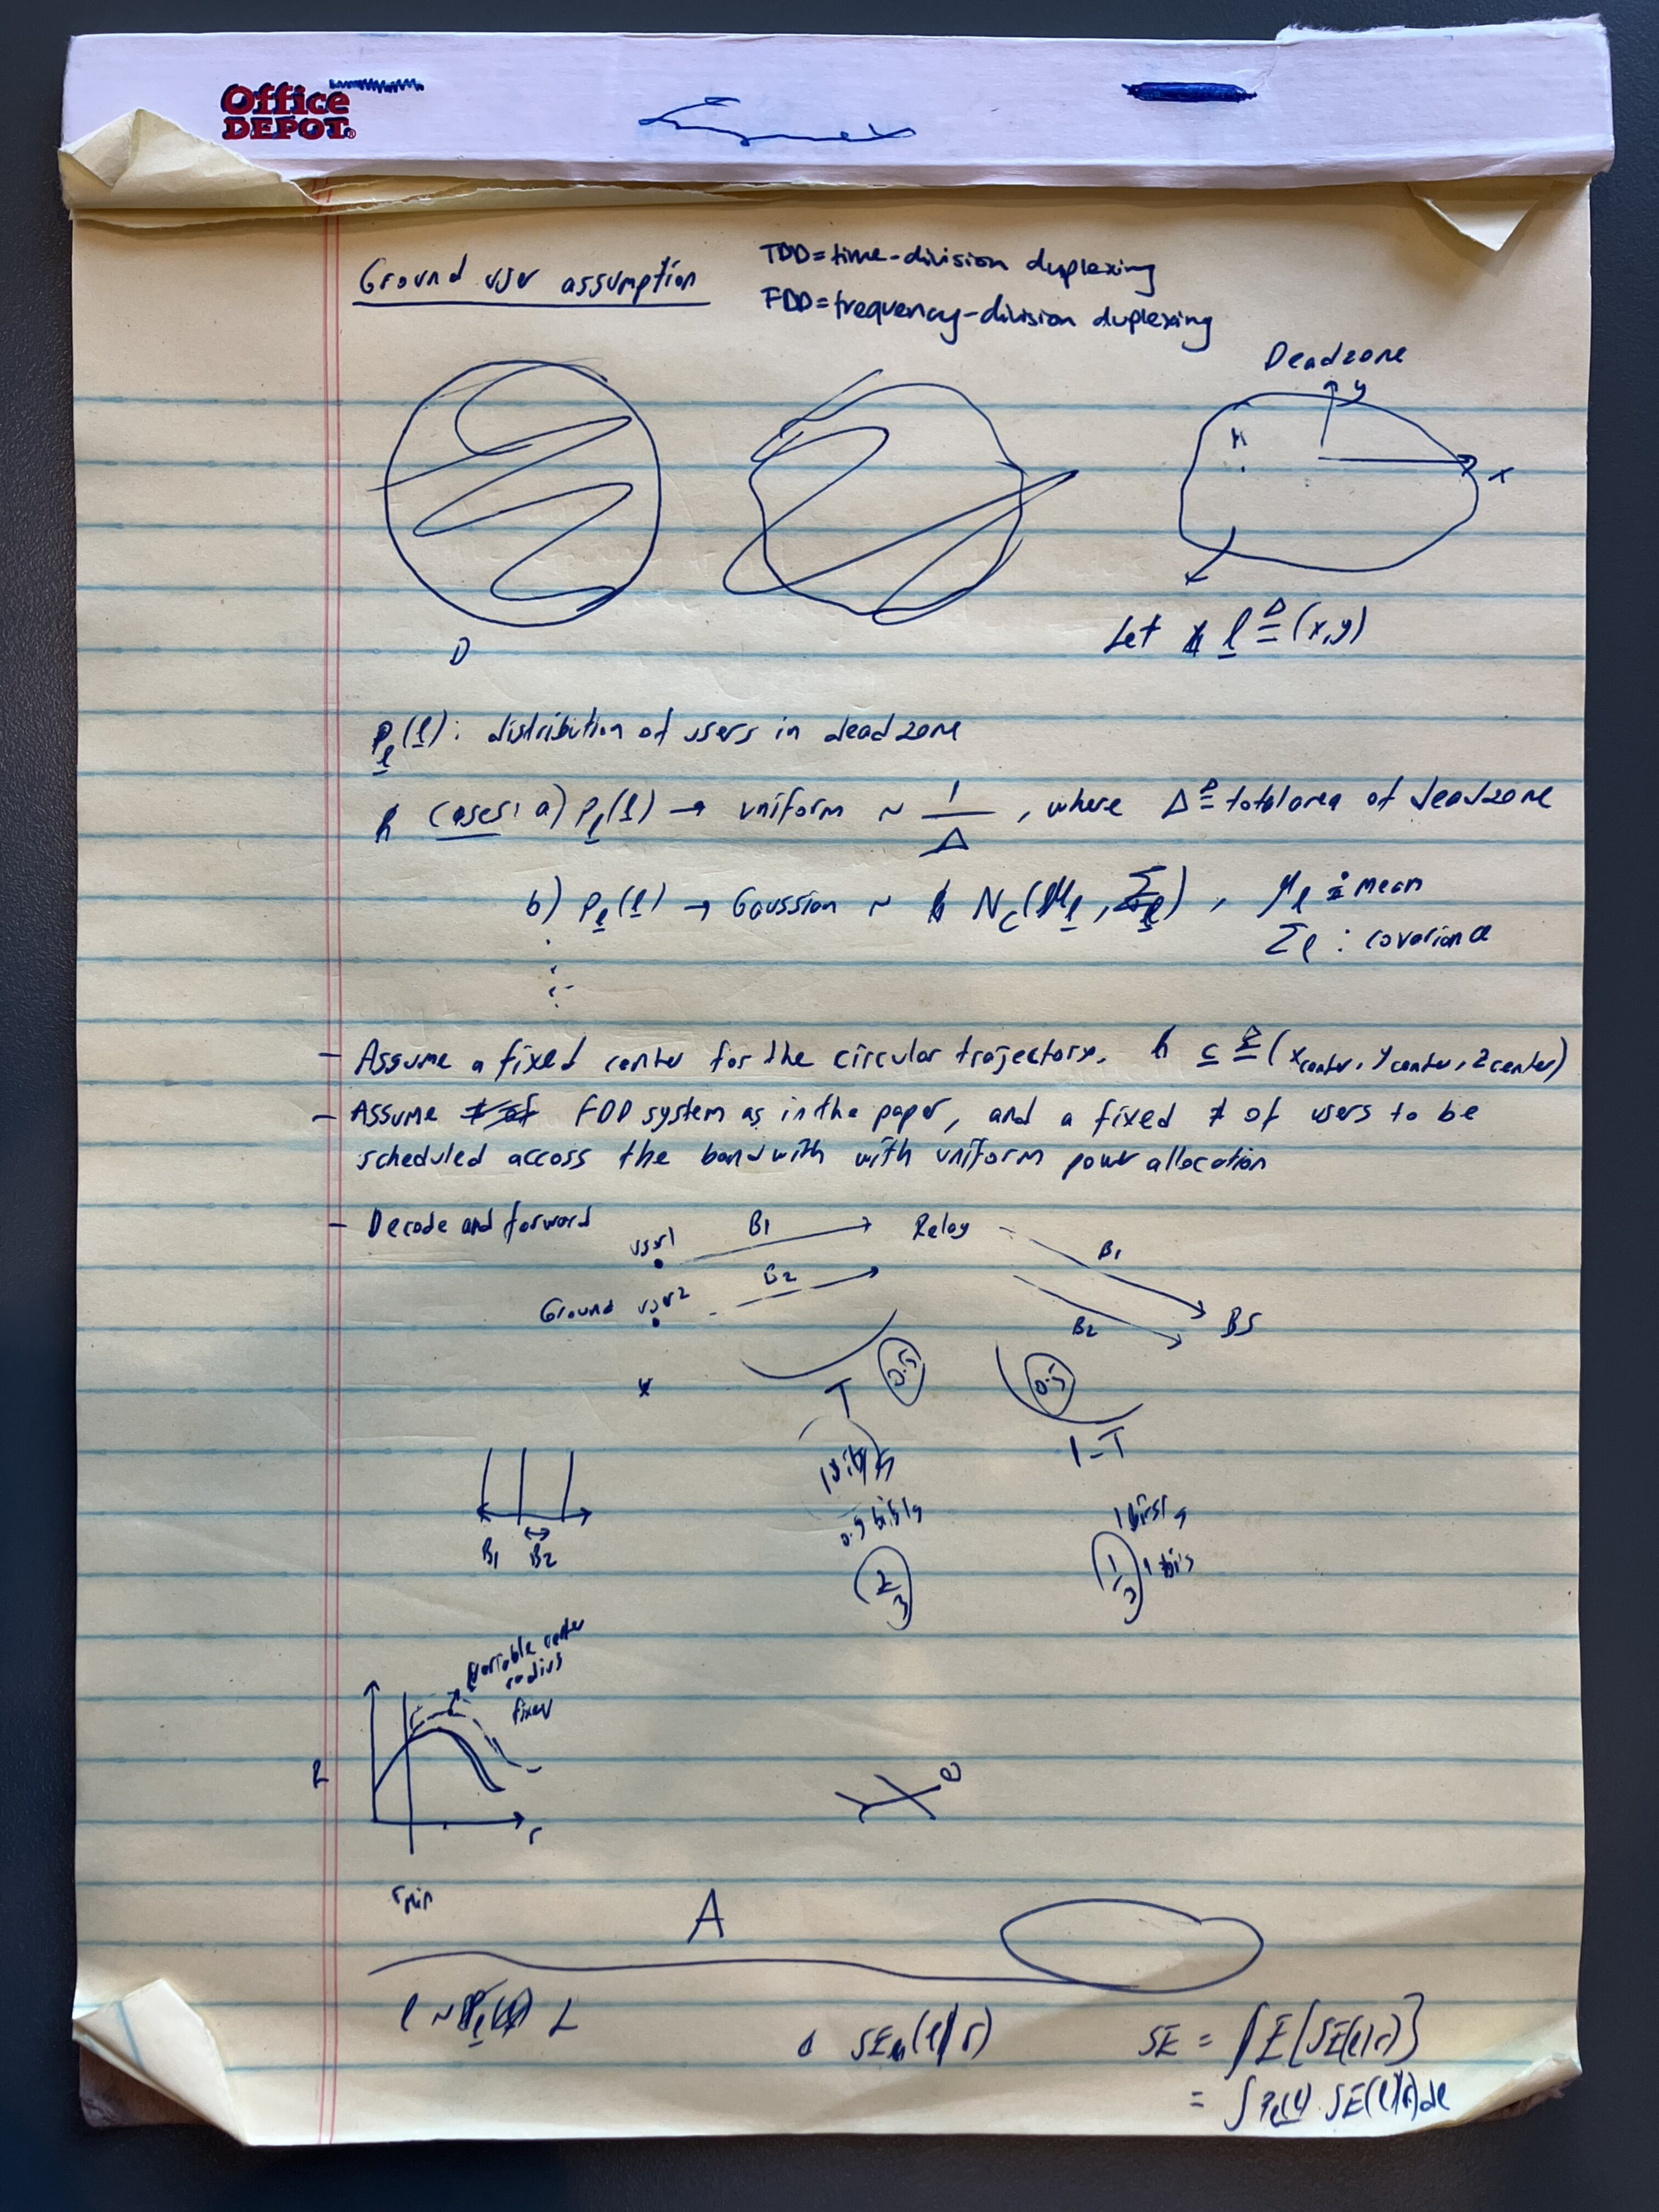 Office
DEPOT
Ground usr assumption
TDD=time-division duplexing
FDD=frequency-division duplexing
Deadzone
y
x
D
Let l ≜ (x,y)
P_l(l): distribution of users in deadzone
cases: a) P_l(l) → uniform ~ 1/Δ, where Δ ≜ total area of deadzone
b) P_l(l) → Gaussian ~ N_c(μ_l, Σ_l), μ_l : mean
Σ_l : covariance
- Assume a fixed center for the circular trajectory. c ≜ (x_center, y_center, z_center)
- Assume FDD system as in the paper, and a fixed # of users to be
scheduled accoss the bandwith with uniform power allocation
- Decode and forward
usr1
B1
Relay
B1
B2
Ground usr2
B2
BS
x
0.5
0.5
T
1-T
B1 B2
2/3
1/3
Variable center
radius
fixed
R
r
r_min
A
l ~ L
SE(l|r)
SE = E[SE(l|r)]
= ∫ P_l(l) · SE(l|r) dl